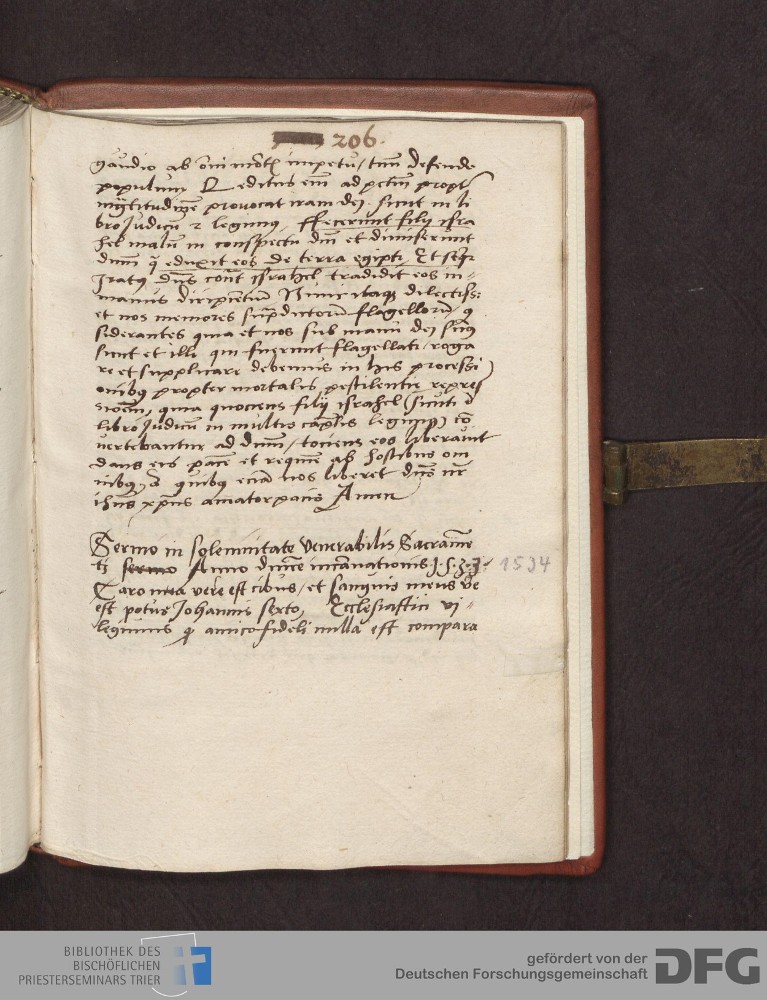 206.
gaudio ab om̄i impetu, defende
populum Reditus em̄ ad propt
provocat iram dej. sicut in li
bro Judicū 2 legimus, ffecerunt filij isra
hel malū in conspectu dn̄i et dimiserunt
dn̄m q̄ eduxit eos de terra egipti, Et
Iratꝯ dn̄s cont israhel tradidit eos in
manus diripientiū itaqꝫ dilectiss:
et nos memores flagellorū
siderantes quia et nos sub manu dej
sicut et illi qui fuerunt flagellati, roga
re et supplicare debemus in his processi
onibꝯ propter mortalis pestilentie repres
sionem, quia quociens filij israhel (sicuti ī
libro Judicū in multis legitur) cō
vertebantur ad dn̄m, tociens eos liberavit
dans eis pacē et requiem ab hostibus om
nibꝯ a quibꝯ eciā nos liberet dn̄s nr̄
ihūs xp̄us amator pacis Amen
Sermo in solemnitate Venerabilis Sacrame
tj sermo Anno dn̄ice incarnationis 1534
Caro mea vere est cibus, et sanguis meus ve
est potus Johannis sexto, Ecclesiastici vi
legimus qꝫ amico fideli nulla est compara
BIBLIOTHEK DES
BISCHÖFLICHEN
PRIESTERSEMINARS TRIER
gefördert von der
Deutschen Forschungsgemeinschaft DFG